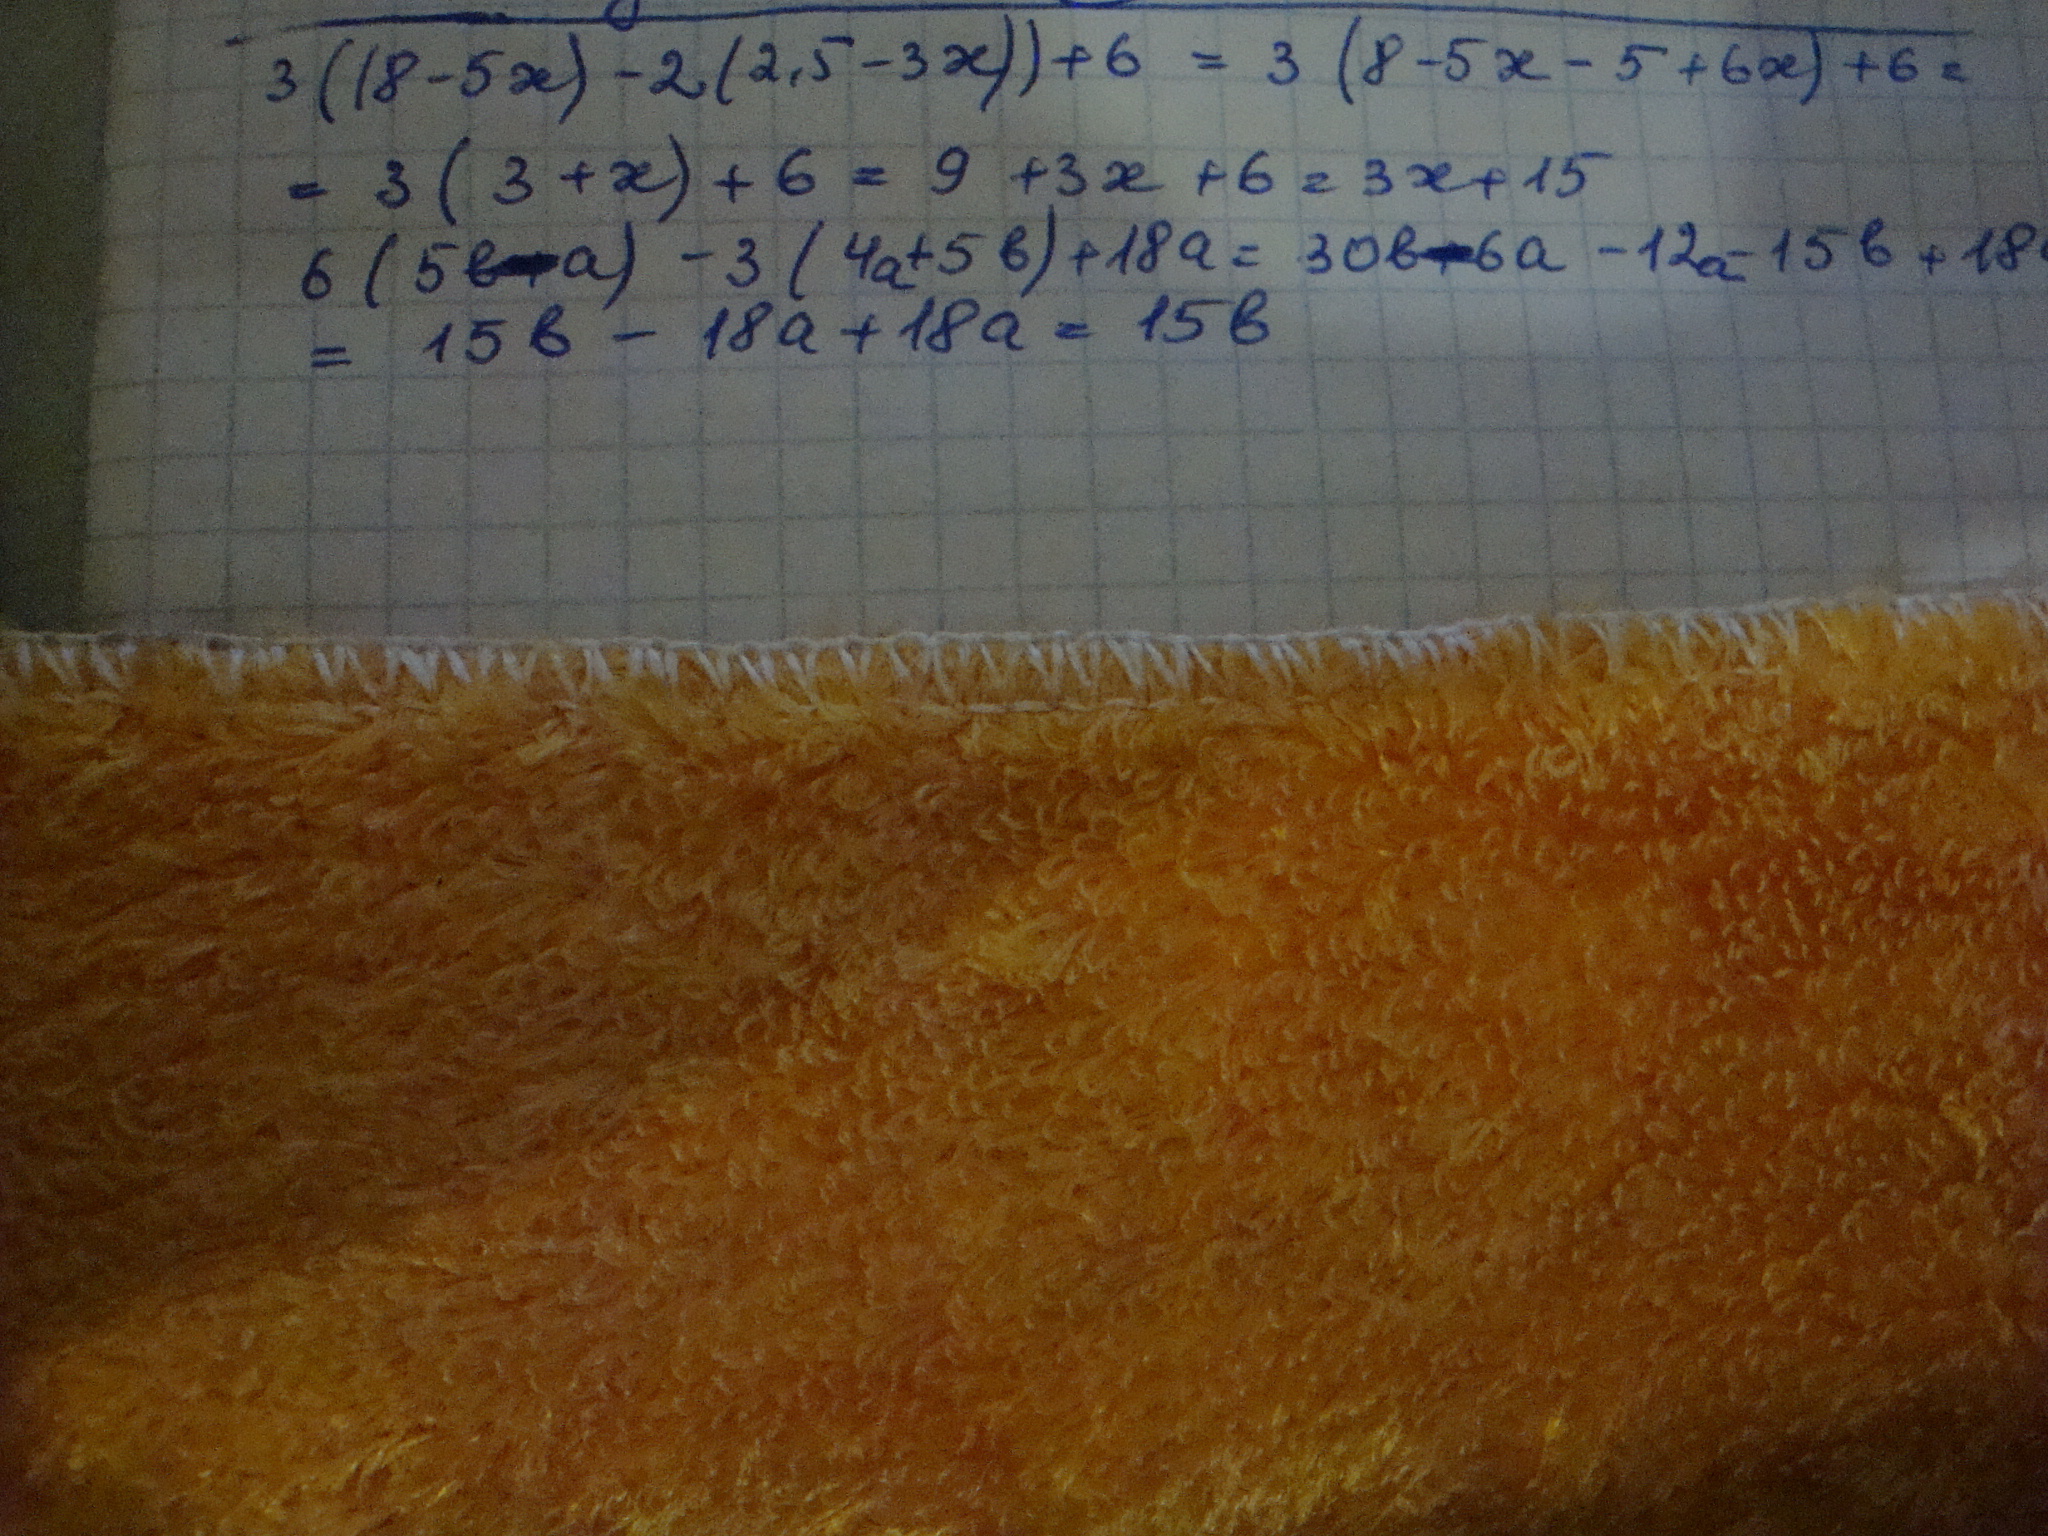 3((8-5x)-2(2,5-3x))+6 = 3(8-5x-5+6x)+6=
= 3(3+x)+6 = 9+3x+6=3x+15
6(5в-а)-3(4а+5в)+18а= 30в-6а-12а-15в+18
= 15в-18а+18а= 15в